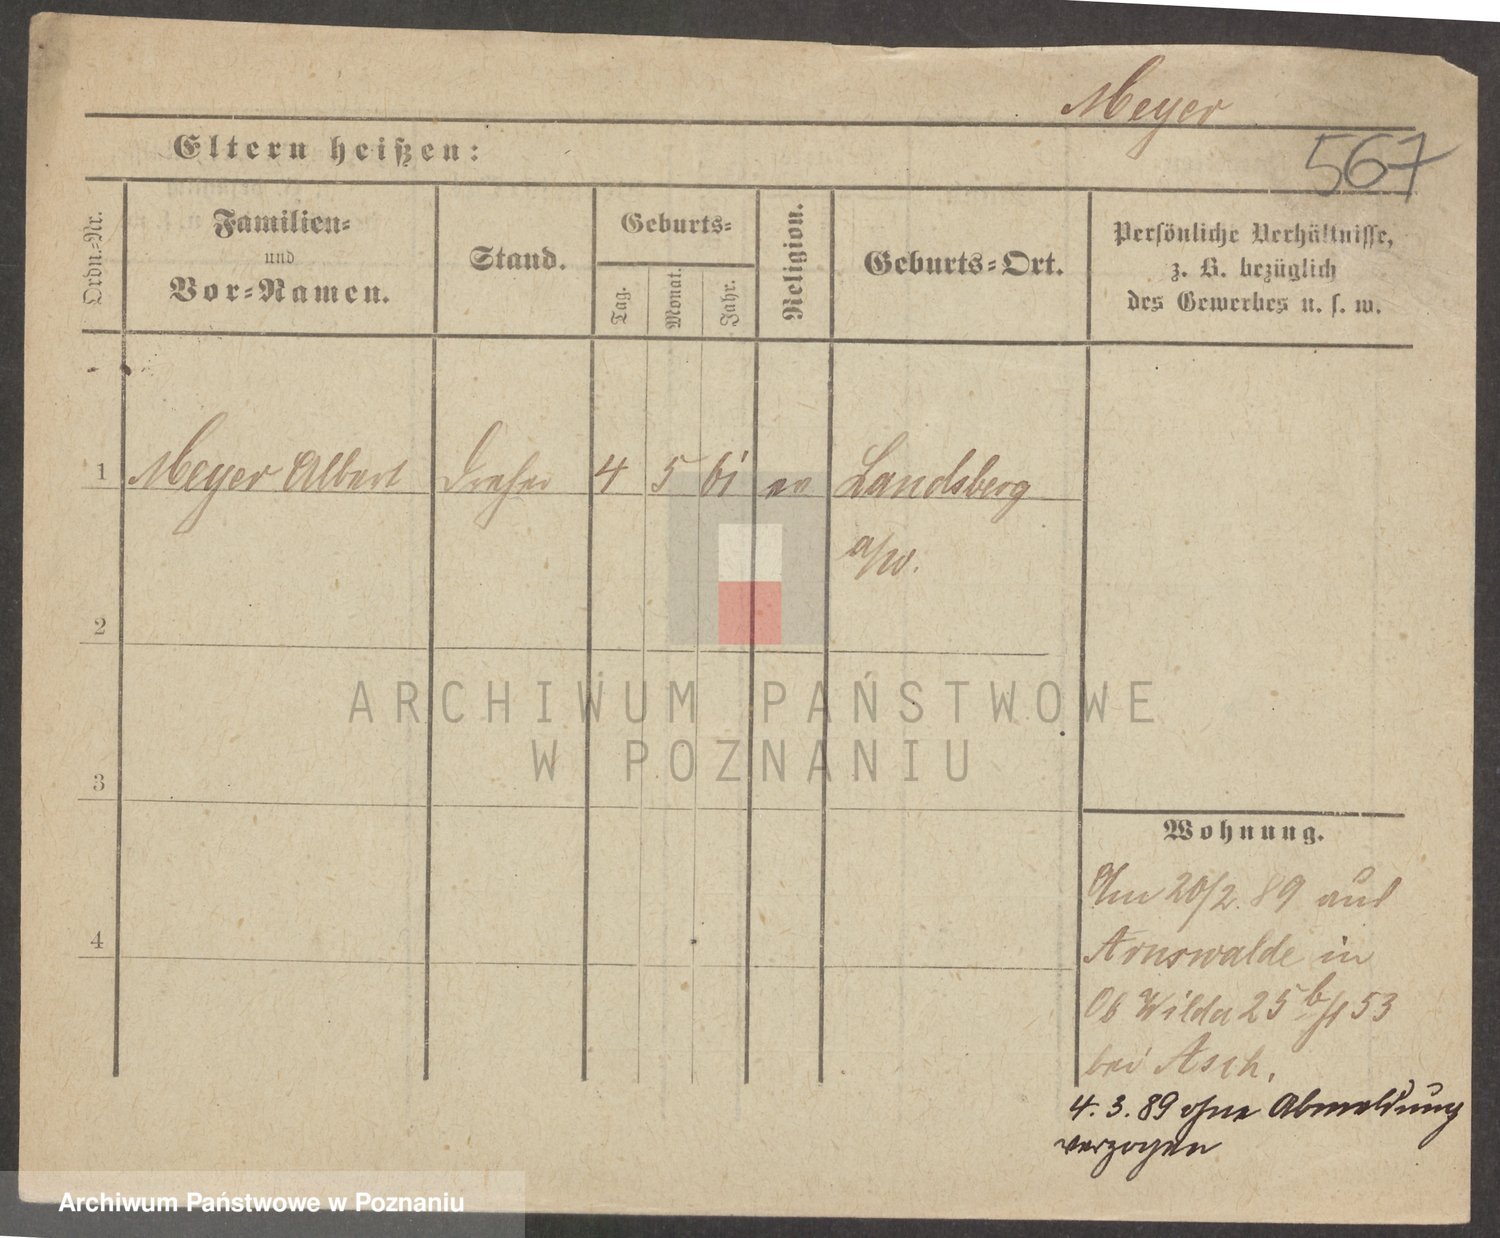 Meyer
567
Eltern heißen:
Ordn.-Nr.
Familien-
und
Vor-Namen.
Stand.
Geburts-
Tag.
Monat.
Jahr.
Religion.
Geburts-Ort.
Persönliche Verhältnisse,
z. B. bezüglich
des Gewerbes u. s. w.
1 Meyer Albert Dreher 4 5 61 ev Landsberg
a/W.
2
3
4
Wohnung.
Am 20/2. 89 aus
Arnswalde in
Ob Wilda 25 b 53
bei Asch.
4. 3. 89 ohne Abmeldung
verzogen
ARCHIWUM PAŃSTWOWE
W POZNANIU
Archiwum Państwowe w Poznaniu